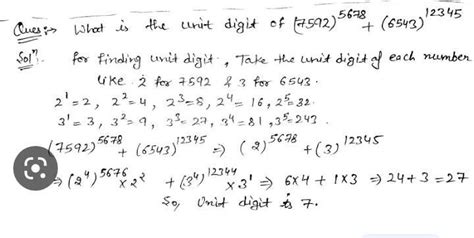 Ques:→ What is the unit digit of (7592)^5678 + (6543)^12345
Solⁿ:- for finding unit digit, Take the unit digit of each number
like 2 for 7592 & 3 for 6543.
2^1=2, 2^2=4, 2^3=8, 2^4=16, 2^5=32.
3^1=3, 3^2=9, 3^3=27, 3^4=81, 3^5=243.
(7592)^5678 + (6543)^12345 ⇒ (2)^5678 + (3)^12345
⇒ (2^4)^5676 × 2^2 + (3^4)^12344 × 3^1 ⇒ 6×4 + 1×3 ⇒ 24+3=27
So, Unit digit is 7.